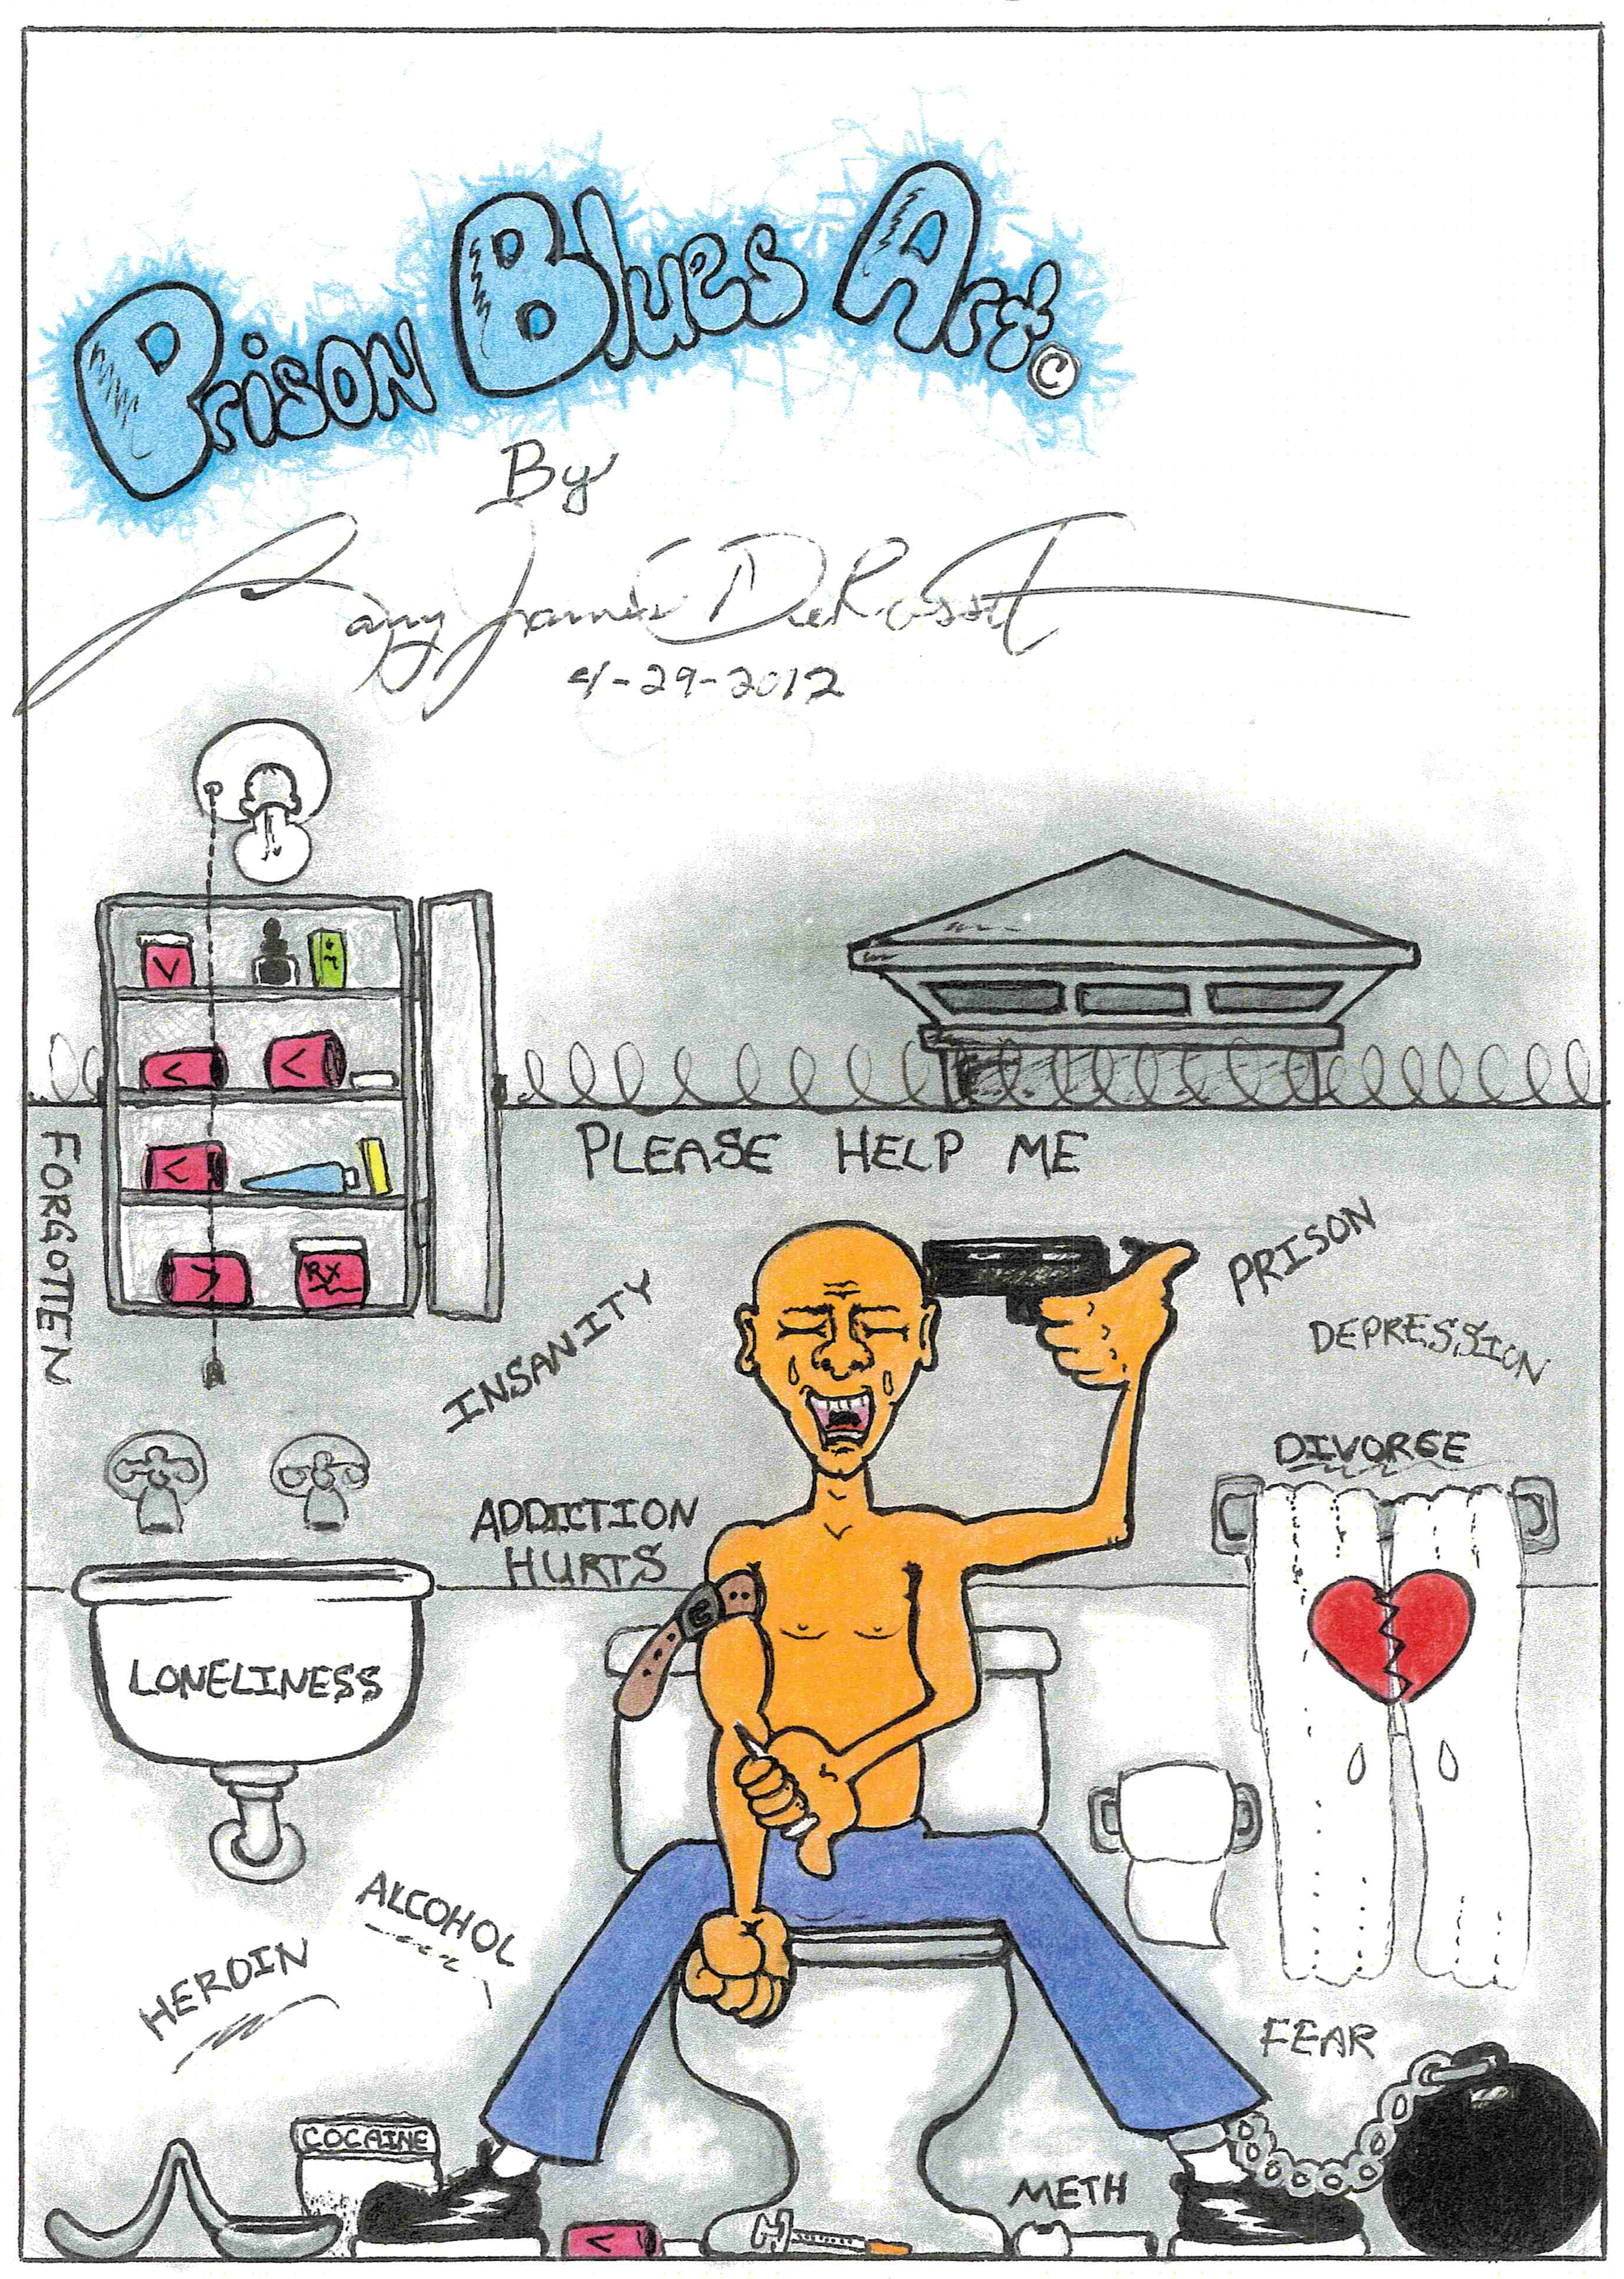 Prison Blues Art ©
By
Gary James DeRossett
4-29-2012
V
<
<
<
>
RX
FORGOTTEN
PLEASE HELP ME
PRISON
DEPRESSION
INSANITY
DIVORCE
ADDICTION
HURTS
LONELINESS
ALCOHOL
HEROIN
FEAR
COCAINE
METH
<